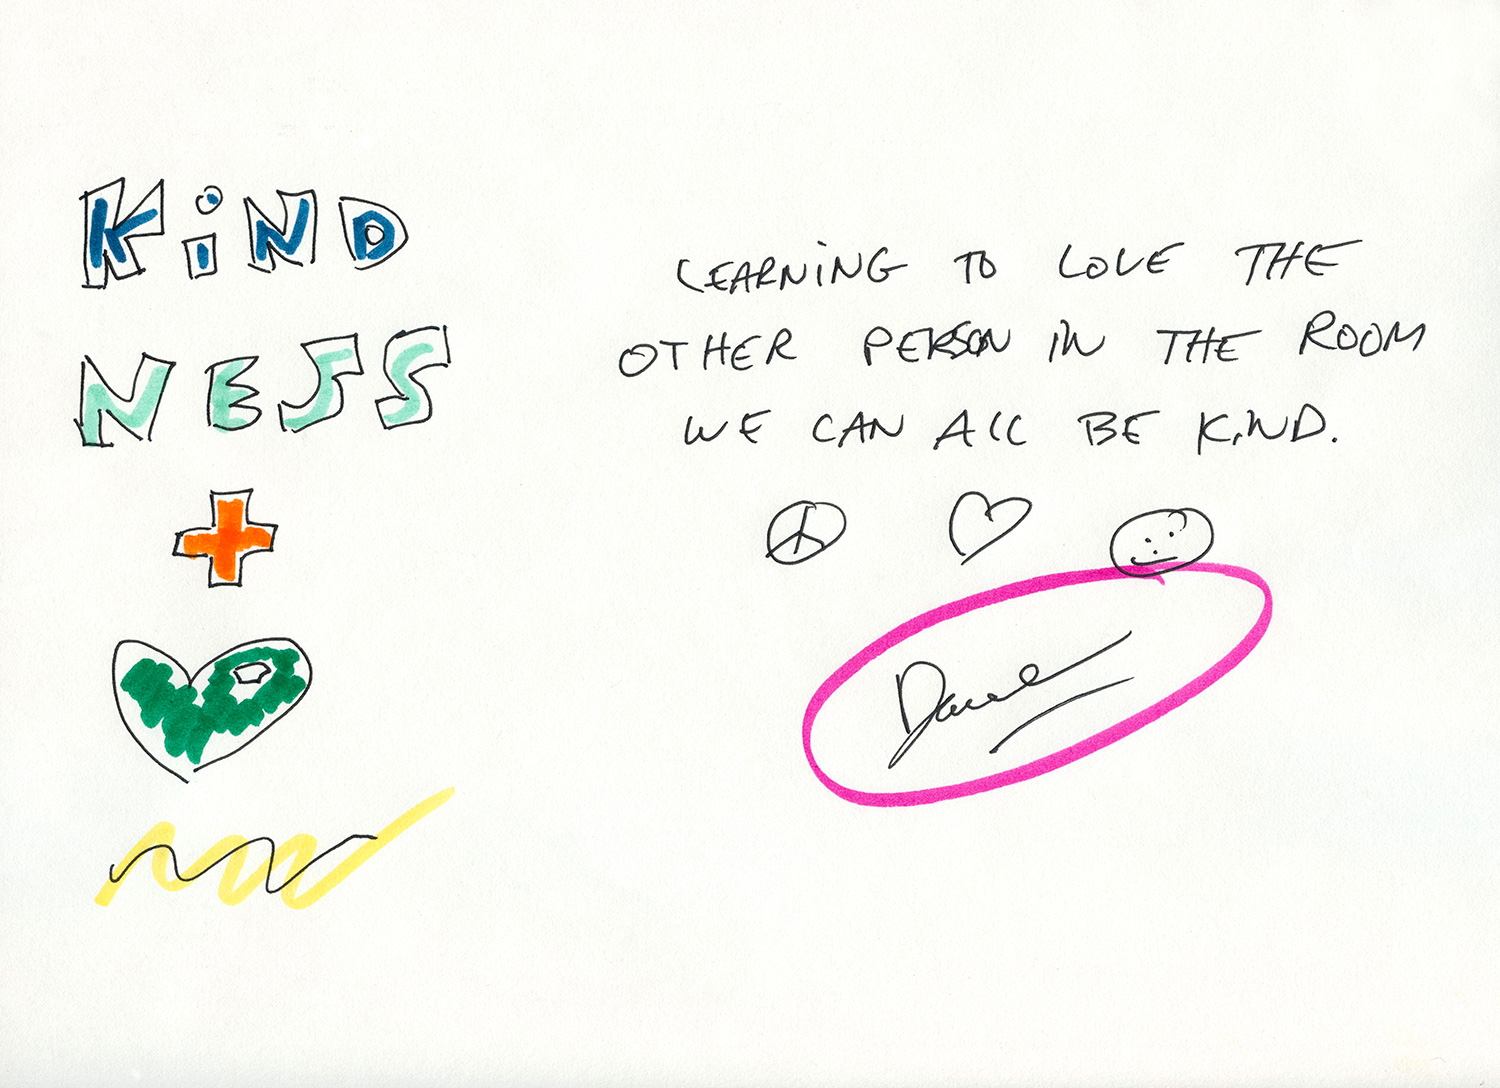 KiND
NESS
+
LEARNiNG TO LOVE THE
OTHER PERSON IN THE ROOM
WE CAN ALL BE KiND.